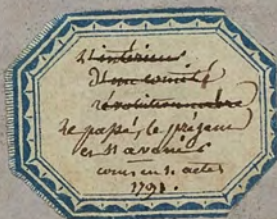 L'intérieur
d'un comité
révolutionnaire
Le passé, le présent
et l'avenir
com. en 3. actes
1791.